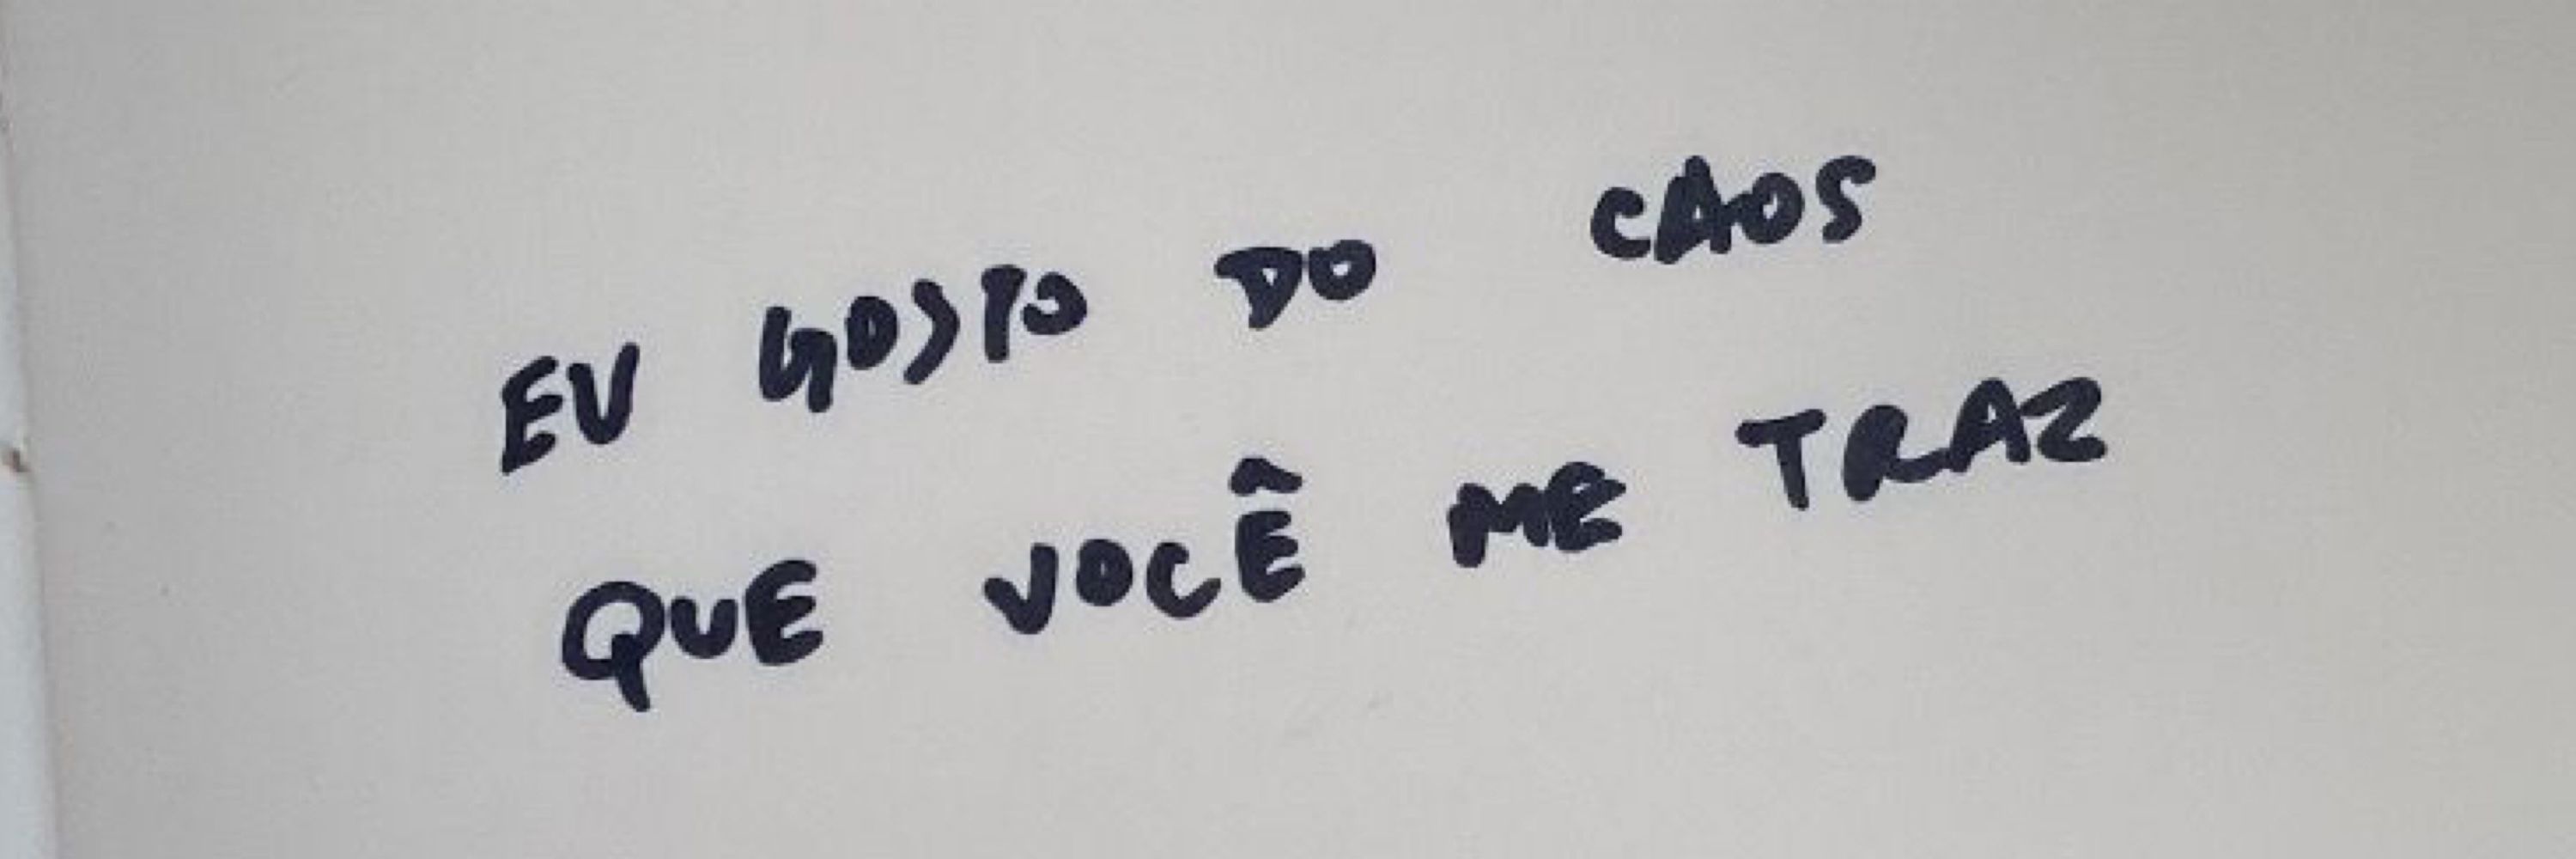 EU GOSTO DO CAOS
QUE VOCÊ ME TRAZ